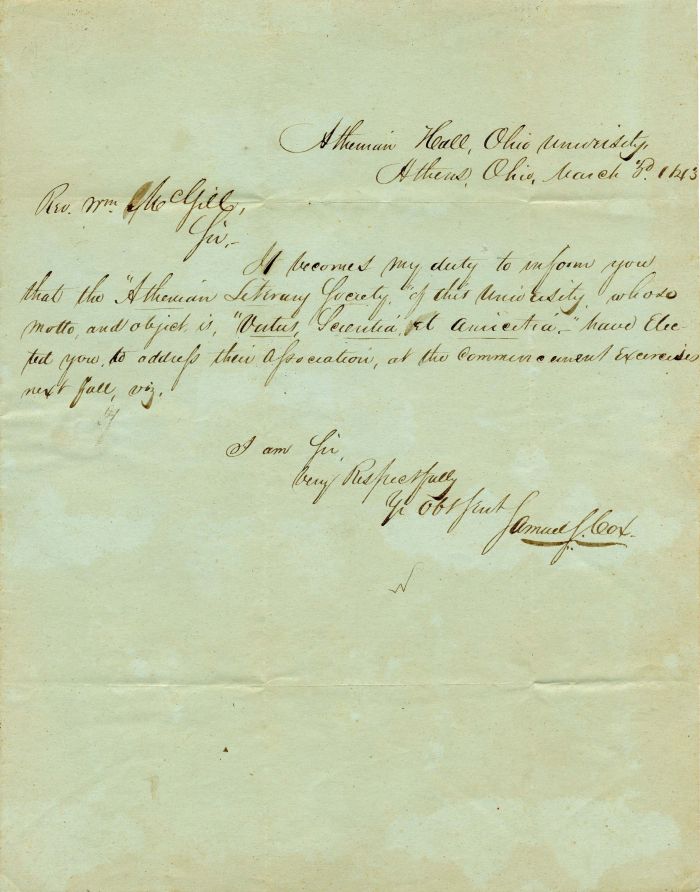 Athenian Hall, Ohio University,
Athens, Ohio, March 1843
Rev. Wm McGill,
Sir,–
It becomes my duty to inform you
that the "Athenian Literary Society," of this University, whose
motto, and object, is, "Virtus, Scientia, et Amicitia," have Elec-
ted you, to address their Association, at the Commencement Exercises
next fall, viz.
I am Sir,
Very Respectfully
Yr Obt Sevt
Samuel S. Cox.